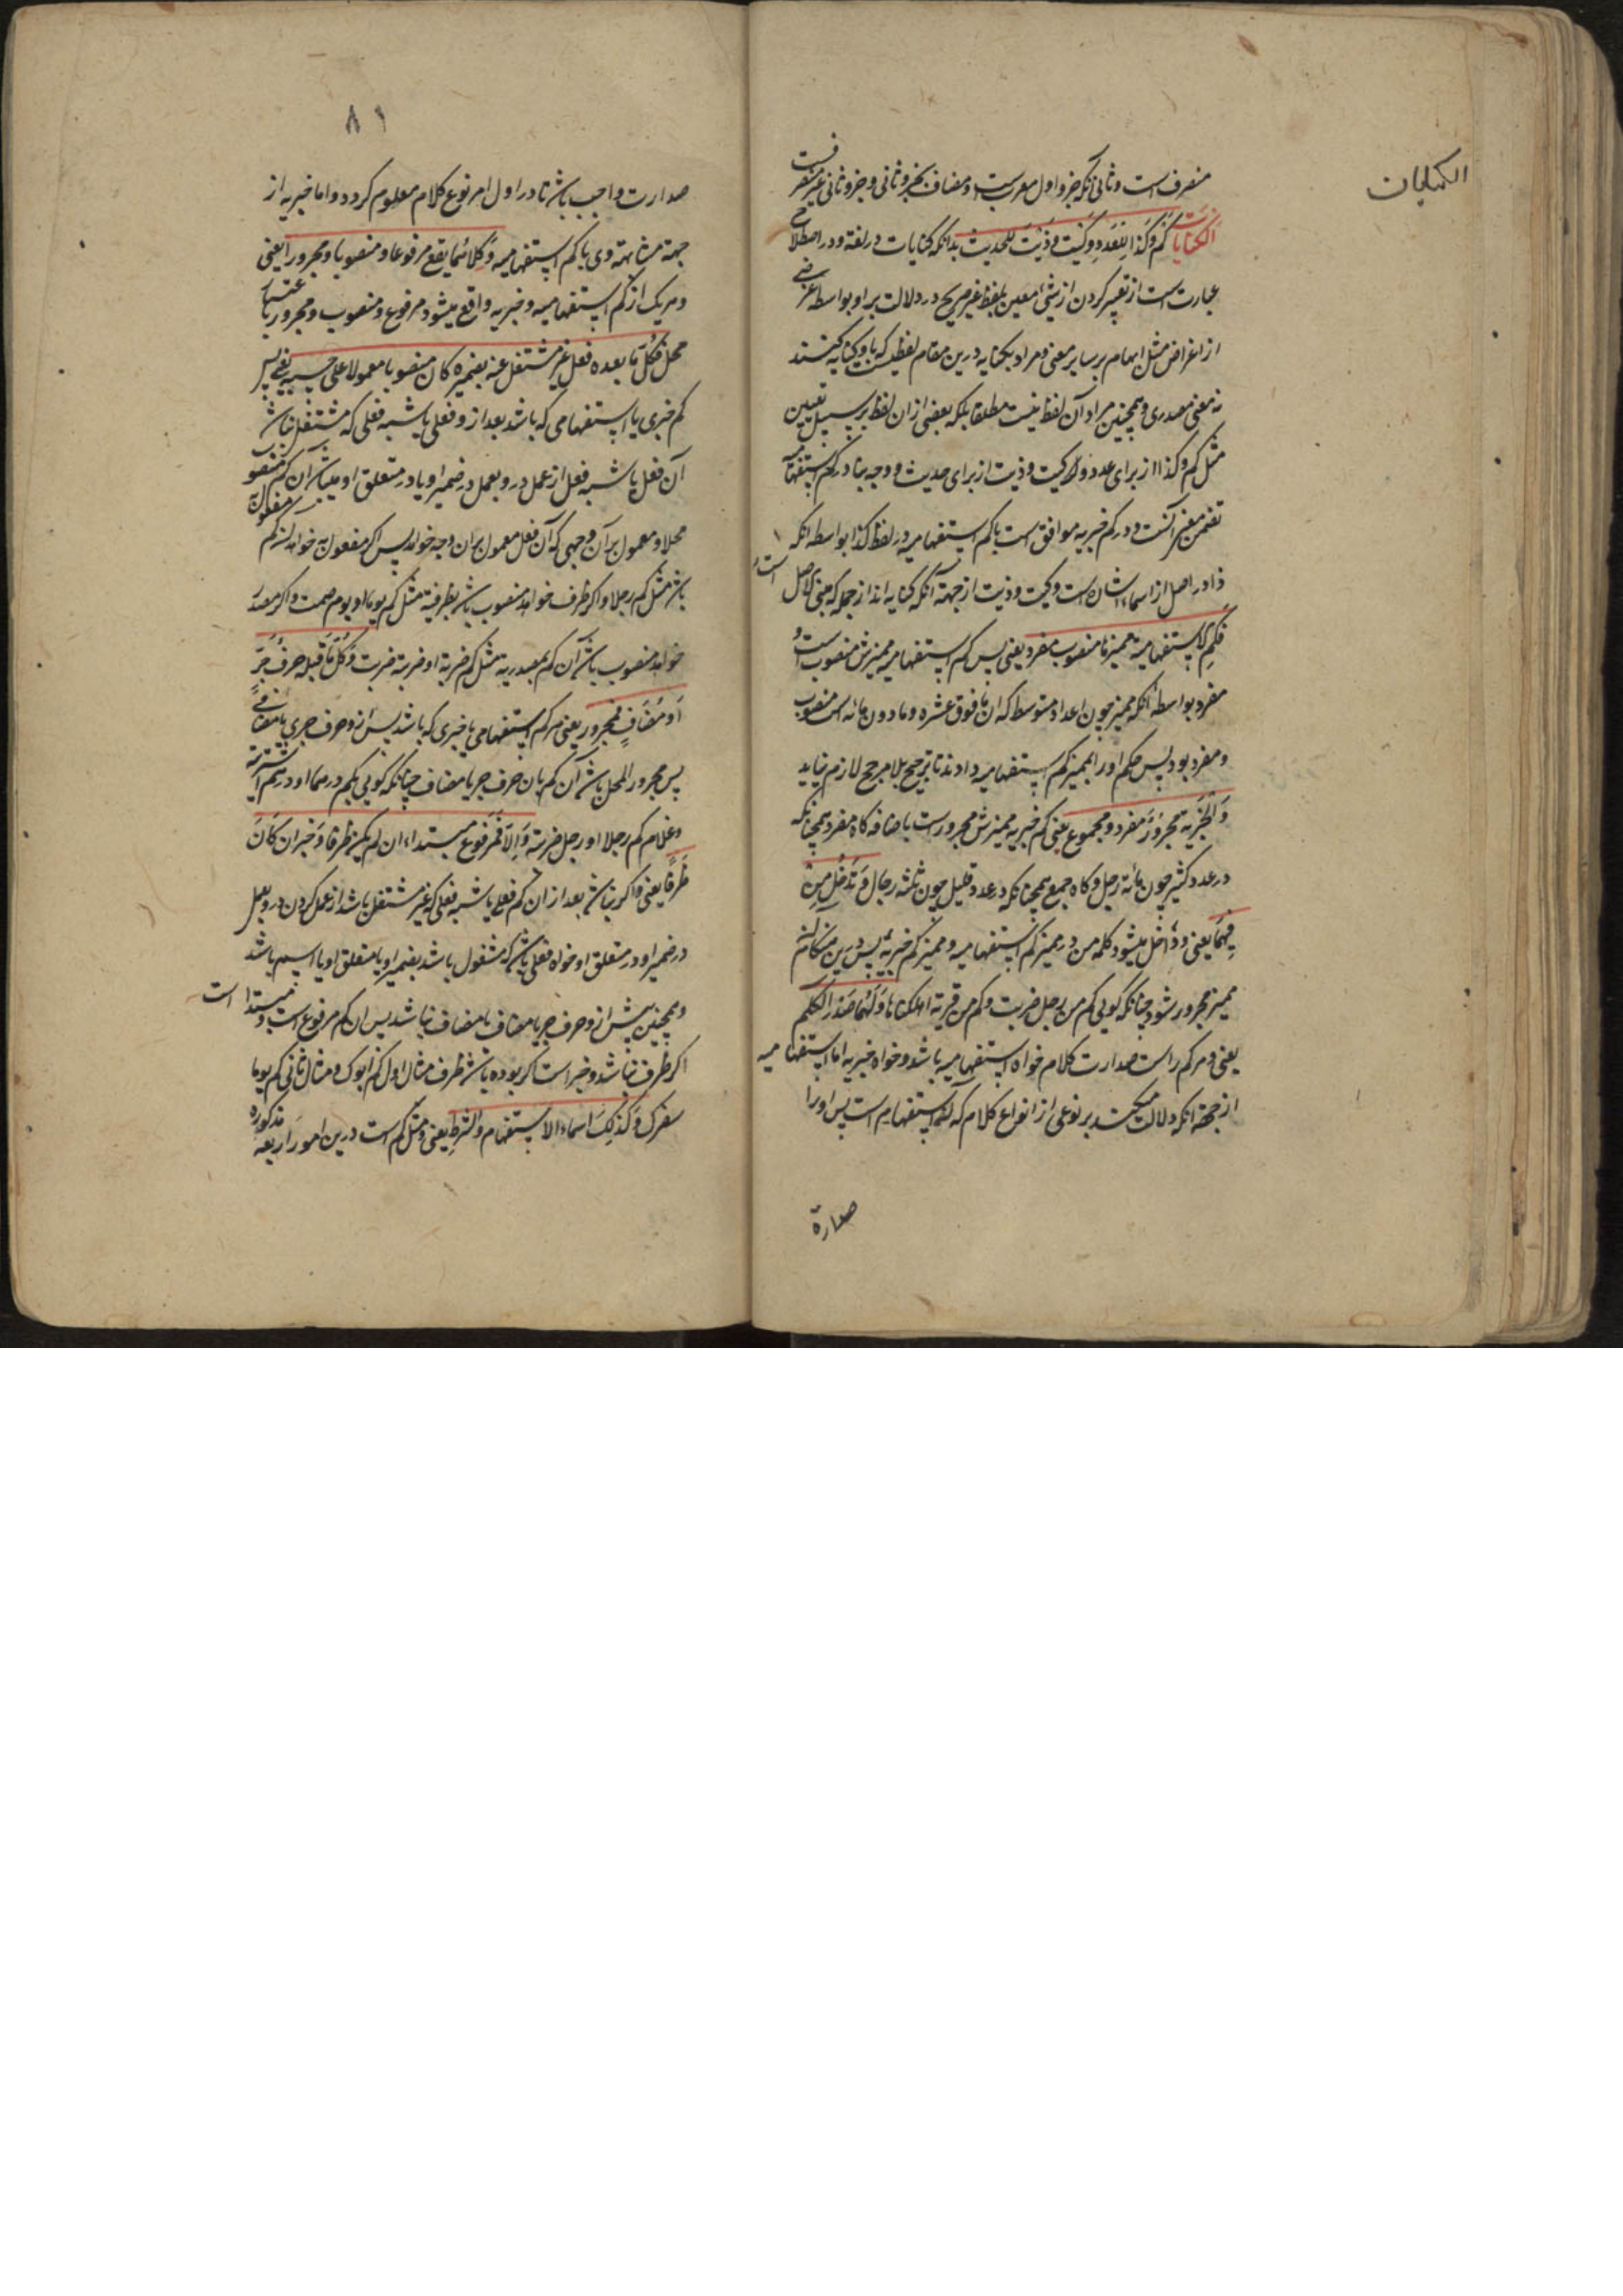 الکنایات
منصرف است و ثانی آنکه جزو اول معربست و مضاف بجزو ثانی و جزو ثانی غیر منصرفست
الکنایات کم و کذا للعدد و کیت و ذیت للحدیث بدانکه کنایات در لغة و در اصطلاح
عبارتست از تعبیر کردن از شئ معین بلفظ غیر صریح در دلالت بر او بواسطه غرضی
از اغراض مثل ابهام بر سامع و مراد بکنایه درین مقام لفظیست که باو کنایه کنند
نه معنی مصدری و همچنین مراد آن لفظ نیست مطلقا بلکه بعضی ازان لفظ بر سبیل تعیین
مثل کم و کذا از برای عدد و کیت و ذیت از برای حدیث و وجه بنا در کم استفهامیه
تضمن معنی است و در کم خبریه موافق است با کم استفهامیه در لفظ کذا بواسطه آنکه
ذا در اصل از اسماء اشاره است و کیت و ذیت از جهة آنکه کنایه اند از جمله که مبنی الاصل است
فکم الاستفهامیة ممیزها منصوب مفرد یعنی پس کم استفهامیه ممیزش منصوبست و
مفرد بواسطه آنکه ممیز چون اعداد متوسط که آن ما فوق عشره و مادون مائه است منصوب
و مفرد بود پس حکم او را بممیز کم استفهامیه دادند تا ترجیح بلا مرجح لازم نیاید
و الخبریة مجرور مفرد و مجموع یعنی کم خبریه ممیزش مجرورست باضافه کاه مفرد همچنانکه
در عدد کثیر چون مائة رجل و کاه جمع همچنانکه در عدد قلیل چون ثلثه رجال و تدخل من
فیهما یعنی و داخل میشود کلمه من در ممیز کم استفهامیه و ممیز کم خبریه پس درین هنکام
ممیز مجرور شود چنانکه کویی کم من رجل ضربت و کم من قریة اهلکناها و لهما صدر الکلم
یعنی و مر کم راست صدارت کلام خواه استفهامیه باشد و خواه خبریه اما استفهامیه
از جهة آنکه دلالت میکند بر نوعی از انواع کلام که آن استفهام است پس او را
صدارة
۸۱
صدارت واجب باشد تا در اول امر نوع کلام معلوم کردد و اما خبریه از
جهة مشابهة وی با کم استفهامیه و کلاهما یقع مرفوعا و منصوبا و مجرورا یعنی
و هر یک از کم استفهامیه و خبریه واقع میشود مرفوع و منصوب و مجرور باعتبار
محل فکل ما بعده فعل غیر مشتغل عنه بضمیره کان منصوبا معمولا علی حسبه یعنی پس
کم خبری یا استفهامی که باشد بعد از و فعلی یا شبه فعلی که مشتغل نباشد
آن فعل یا شبه فعل از عمل درو بعمل در ضمیر او یا در متعلق او میباشد آن کم منصوب
محلا و معمول بر آن وجهی که آن فعل معمول بران وجه خواهد پس اکر مفعول به خواهد کم مفعول به
باشد مثل کم رجلا و اکر ظرف خواهد منصوب باشد بظرفیة مثل کم یوما او یوم صمت و اکر مصدر
خواهد منصوب باشد آن کم بمصدریه مثل کم ضربة او ضربة ضربت و کل ما قبله حرف جر
او مضاف فمجرور یعنی هر کم استفهامی یا خبری که باشد پیش از و حرف جری یا مضافی
پس مجرور المحل باشد آن کم بان حرف جر یا مضاف چنانکه کویی بکم درهما او درهم اشتریته
و غلام کم رجلا او رجل ضربته و الا فمرفوع مبتداء ان لم یکن ظرفا و خبر ان کان
ظرفا یعنی و اکر نباشد بعد ازان کم فعلی یا شبه فعلی که غیر مشتغل باشد از عمل کردن درو بعمل
در ضمیر او در متعلق او خواه فعلی باشد که مشغول باشد بضمیر او یا بمتعلق او یا اسم باشد
و همچنین پیش از و حرف جر یا مضاف نباشد پس ان کم مرفوع است و مبتدا است
اکر ظرف نباشد و خبر است اکر بوده باشد ظرف مثال اول کم ابوک و مثال ثانی کم یوما
سفرک و کذلک اسماء الاستفهام و الشرط یعنی و مثل کم است درین امور اربعه مذکوره